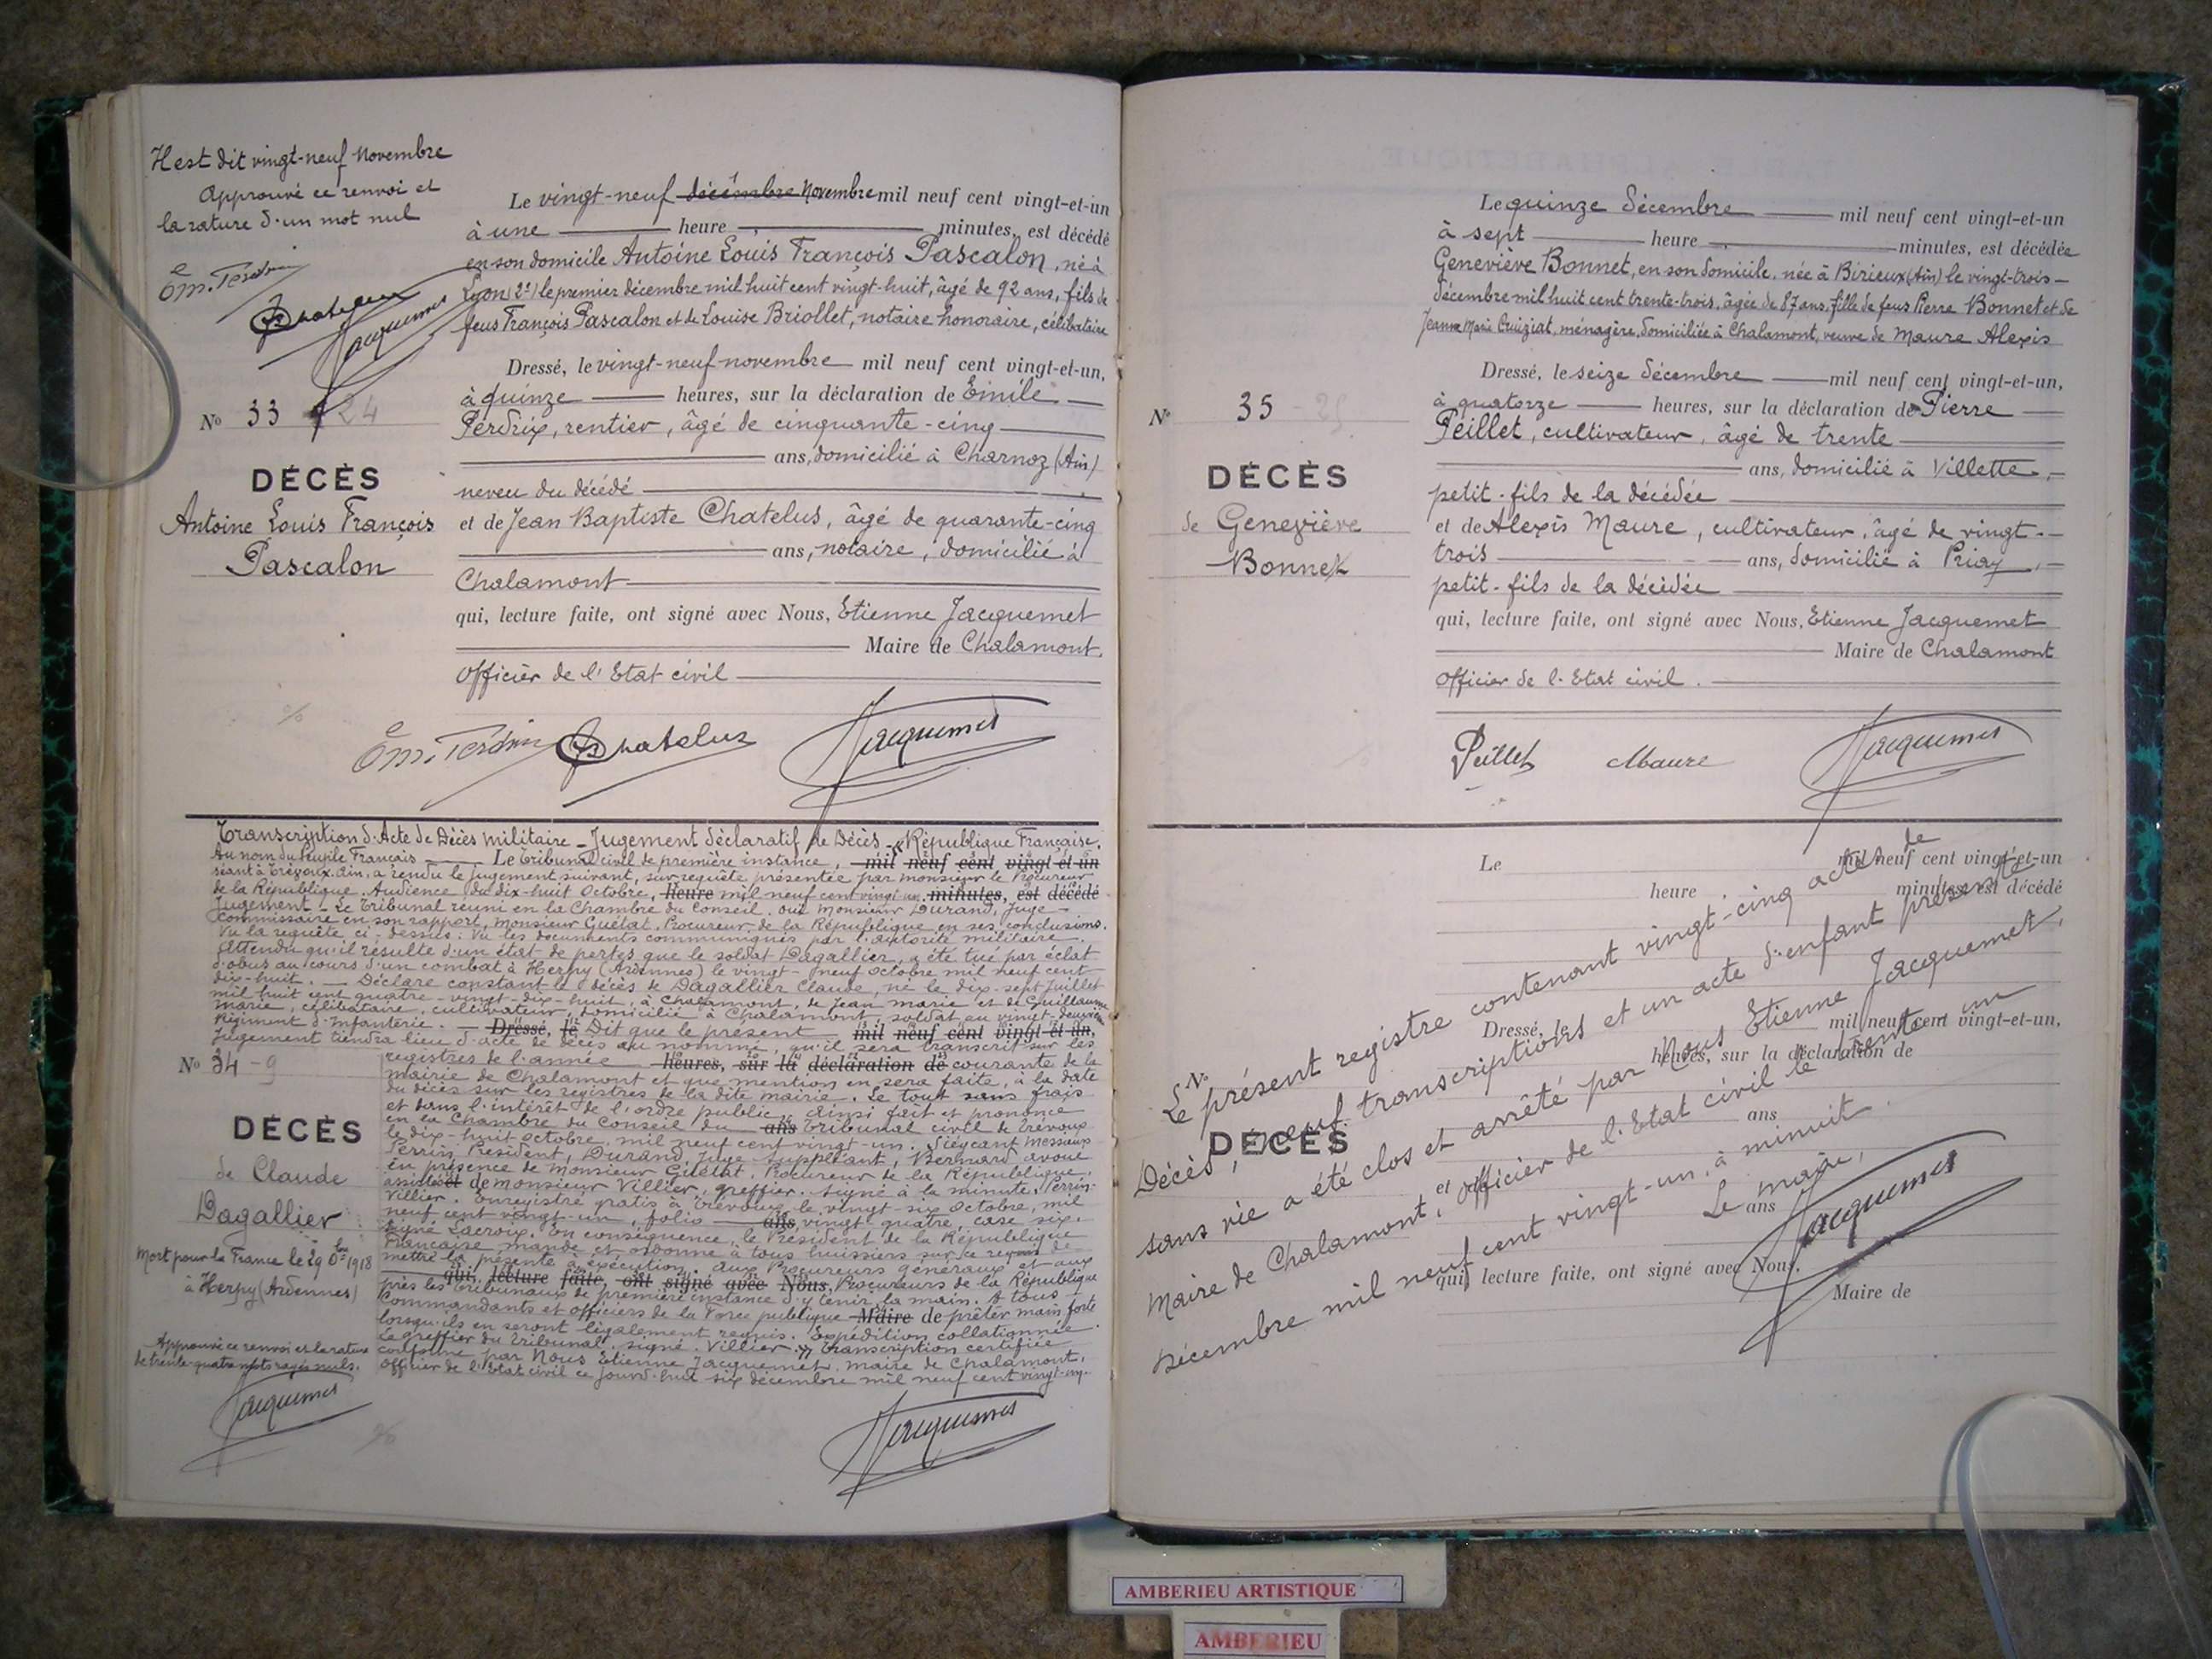 Il est dit vingt-neuf Novembre
Approuvé ce renvoi et
la rature d'un mot nul
Em. Perdrix
Chatelus
Jacquemet
Le vingt-neuf décembre Novembre mil neuf cent vingt-et-un
à une heure minutes, est décédé
en son domicile Antoine Louis François Pascalon, né à
Lyon (2e) le premier décembre mil huit cent vingt-huit, âgé de 92 ans, fils de
feus François Pascalon et de Louise Briollet, notaire honoraire, célibataire
Dressé, le vingt-neuf novembre mil neuf cent vingt-et-un,
à quinze heures, sur la déclaration de Emile
Perdrix, rentier, âgé de cinquante-cinq
ans, domicilié à Charnoz (Ain)
neveu du décédé
et de Jean Baptiste Chatelus, âgé de quarante-cinq
ans, notaire, domicilié à
Chalamont
qui, lecture faite, ont signé avec Nous, Etienne Jacquemet
Maire de Chalamont.
Officier de l'Etat civil
No 33 24
DÉCÈS
Antoine Louis François
Pascalon
Em. Perdrix Chatelus Jacquemet
Transcription d'Acte de Décès militaire - Jugement déclaratif de Décès - République Française.
Au nom du Peuple Français Le tribunal civil de première instance, mil neuf cent vingt-et-un
séant à Trévoux. Ain, a rendu le jugement suivant, sur requête présentée par monsieur le Procureur
de la République. Audience du dix-huit Octobre, heure mil neuf cent vingt-un. minutes, est décédé
Jugement - Le Tribunal réuni en la Chambre du Conseil. ouï Monsieur Durand, Juge
Commissaire en son rapport, Monsieur Guétat, Procureur de la République en ses conclusions.
Vu la requête ci-dessus : Vu les documents communiqués par l'autorité militaire.
Attendu qu'il résulte d'un état de pertes que le soldat Dagallier, a été tué par éclat
d'obus au cours d'un combat à Herpy (Ardennes) le vingt-neuf octobre mil neuf cent
dix-huit. - Déclare constant le décès de Dagallier Claude, né le dix-sept Juillet
mil huit cent quatre-vingt-dix-huit, à Chalamont, de Jean marie et de Guillaume
marie, célibataire, cultivateur, domicilié à Chalamont, soldat au vingt-deuxième
Régiment d'Infanterie. - Dressé, le Dit que le présent mil neuf cent vingt-et-un,
Jugement tiendra lieu d'acte de décès au nommé, qu'il sera transcrit sur les
registres de l'année heures, sur la déclaration de courante de la
mairie de Chalamont et que mention en sera faite, à la date
du décès sur les registres de la dite mairie. Le tout sans frais
et dans l'intérêt de l'ordre public. Ainsi fait et prononcé
en la Chambre du Conseil du ans Tribunal civil de Trévoux
le dix-huit octobre, mil neuf cent vingt-un. Siégeant Messieurs
Perrin Président, Durand, Juge suppléant, Bernard avoué
en présence de Monsieur Guétat, Procureur de la République,
assisté et de monsieur Villier, greffier. Signé à la minute. Perrin-
Villier. Enregistré gratis à Trévoux, le vingt-six Octobre, mil
neuf cent vingt-un, folio ans, vingt quatre, case six.
Signé Lacroix. En conséquence, le Président de la République
Française, mande et ordonne à tous huissiers sur ce requis de
mettre la présente à exécution. Aux Procureurs généraux et aux
qui, lecture faite, ont signé avec Nous, Procureurs de la République
près les Tribunaux de première instance d'y tenir la main. A tous
Commandants et officiers de la Force publique Maire de prêter main forte
lorsqu'ils en seront légalement requis. Expédition collationnée.
Le greffier du Tribunal. signé. Villier. Transcription certifiée
conforme par Nous Etienne Jacquemet. maire de Chalamont,
officier de l'Etat civil ce jourd'hui six décembre mil neuf cent vingt-un.
No 34 - 9
DÉCÈS
de Claude
Dagallier
Mort pour la France le 29 8bre 1918
à Herpy (Ardennes)
Approuvé ce renvoi et la rature
de trente-quatre mots rayés nuls.
Jacquemet
Jacquemet
Le quinze décembre mil neuf cent vingt-et-un
à sept heure minutes, est décédée
Geneviève Bonnet, en son domicile. née à Birieux (Ain) le vingt-trois
décembre mil huit cent trente-trois, âgée de 87 ans, fille de feus Pierre Bonnet et de
Jeanne Marie Cuiziat, ménagère, domiciliée à Chalamont, veuve de Maure Alexis
Dressé, le seize décembre mil neuf cent vingt-et-un,
à quatorze heures, sur la déclaration de Pierre
Peillet, cultivateur, âgé de trente
ans, domicilié à Villette,
petit-fils de la décédée
et de Alexis Maure, cultivateur, âgé de vingt-
trois ans, domicilié à Priay,
petit-fils de la décédée
qui, lecture faite, ont signé avec Nous, Etienne Jacquemet
Maire de Chalamont
Officier de l'Etat civil.
No 35 - 25
DÉCÈS
de Geneviève
Bonnet
Peillet Maure Jacquemet
Le mil neuf cent vingt-et-un
heure minutes est décédé
Dressé, le mil neuf cent vingt-et-un,
heures, sur la déclaration de
ans
et de
ans
qui, lecture faite, ont signé avec Nous,
Maire de
No
DÉCÈS
Le présent registre contenant vingt-cinq actes de
Décès, neuf transcriptions et un acte d'enfant présenté
sans vie a été clos et arrêté par Nous Etienne Jacquemet,
Maire de Chalamont, officier de l'Etat civil le trente un
Décembre mil neuf cent vingt-un, à minuit.
Le maire,
Jacquemet
AMBERIEU ARTISTIQUE
AMBERIEU